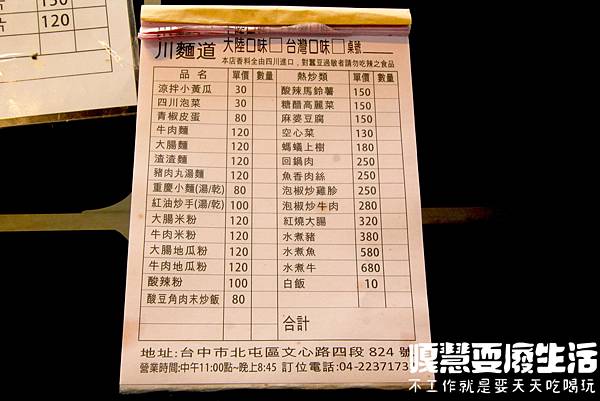 片 120
150
川麵道 大陸口味□ 台灣口味□ 桌號
本店香料全由四川進口，對蠶豆過敏者請勿吃辣之食品
品名 單價 數量 熱炒類 單價 數量
涼拌小黃瓜 30 酸辣馬鈴薯 150
四川泡菜 30 糖醋高麗菜 150
青椒皮蛋 80 麻婆豆腐 150
牛肉麵 120 空心菜 130
大腸麵 120 螞蟻上樹 180
渣渣麵 120 回鍋肉 250
豬肉丸湯麵 120 魚香肉絲 250
重慶小麵(湯/乾) 80 泡椒炒雞胗 250
紅油炒手(湯/乾) 100 泡椒炒牛肉 280
大腸米粉 120 紅燒大腸 320
牛肉米粉 120 水煮豬 380
大腸地瓜粉 120 水煮魚 580
牛肉地瓜粉 120 水煮牛 680
酸辣粉 100 白飯 10
酸豆角肉末炒飯 80
合計
地址:台中市北屯區文心路四段 824 號
營業時間:中午11:00點~晚上8:45 訂位電話:04-2237173
嘎慧耍廢生活
不工作就是要天天吃喝玩